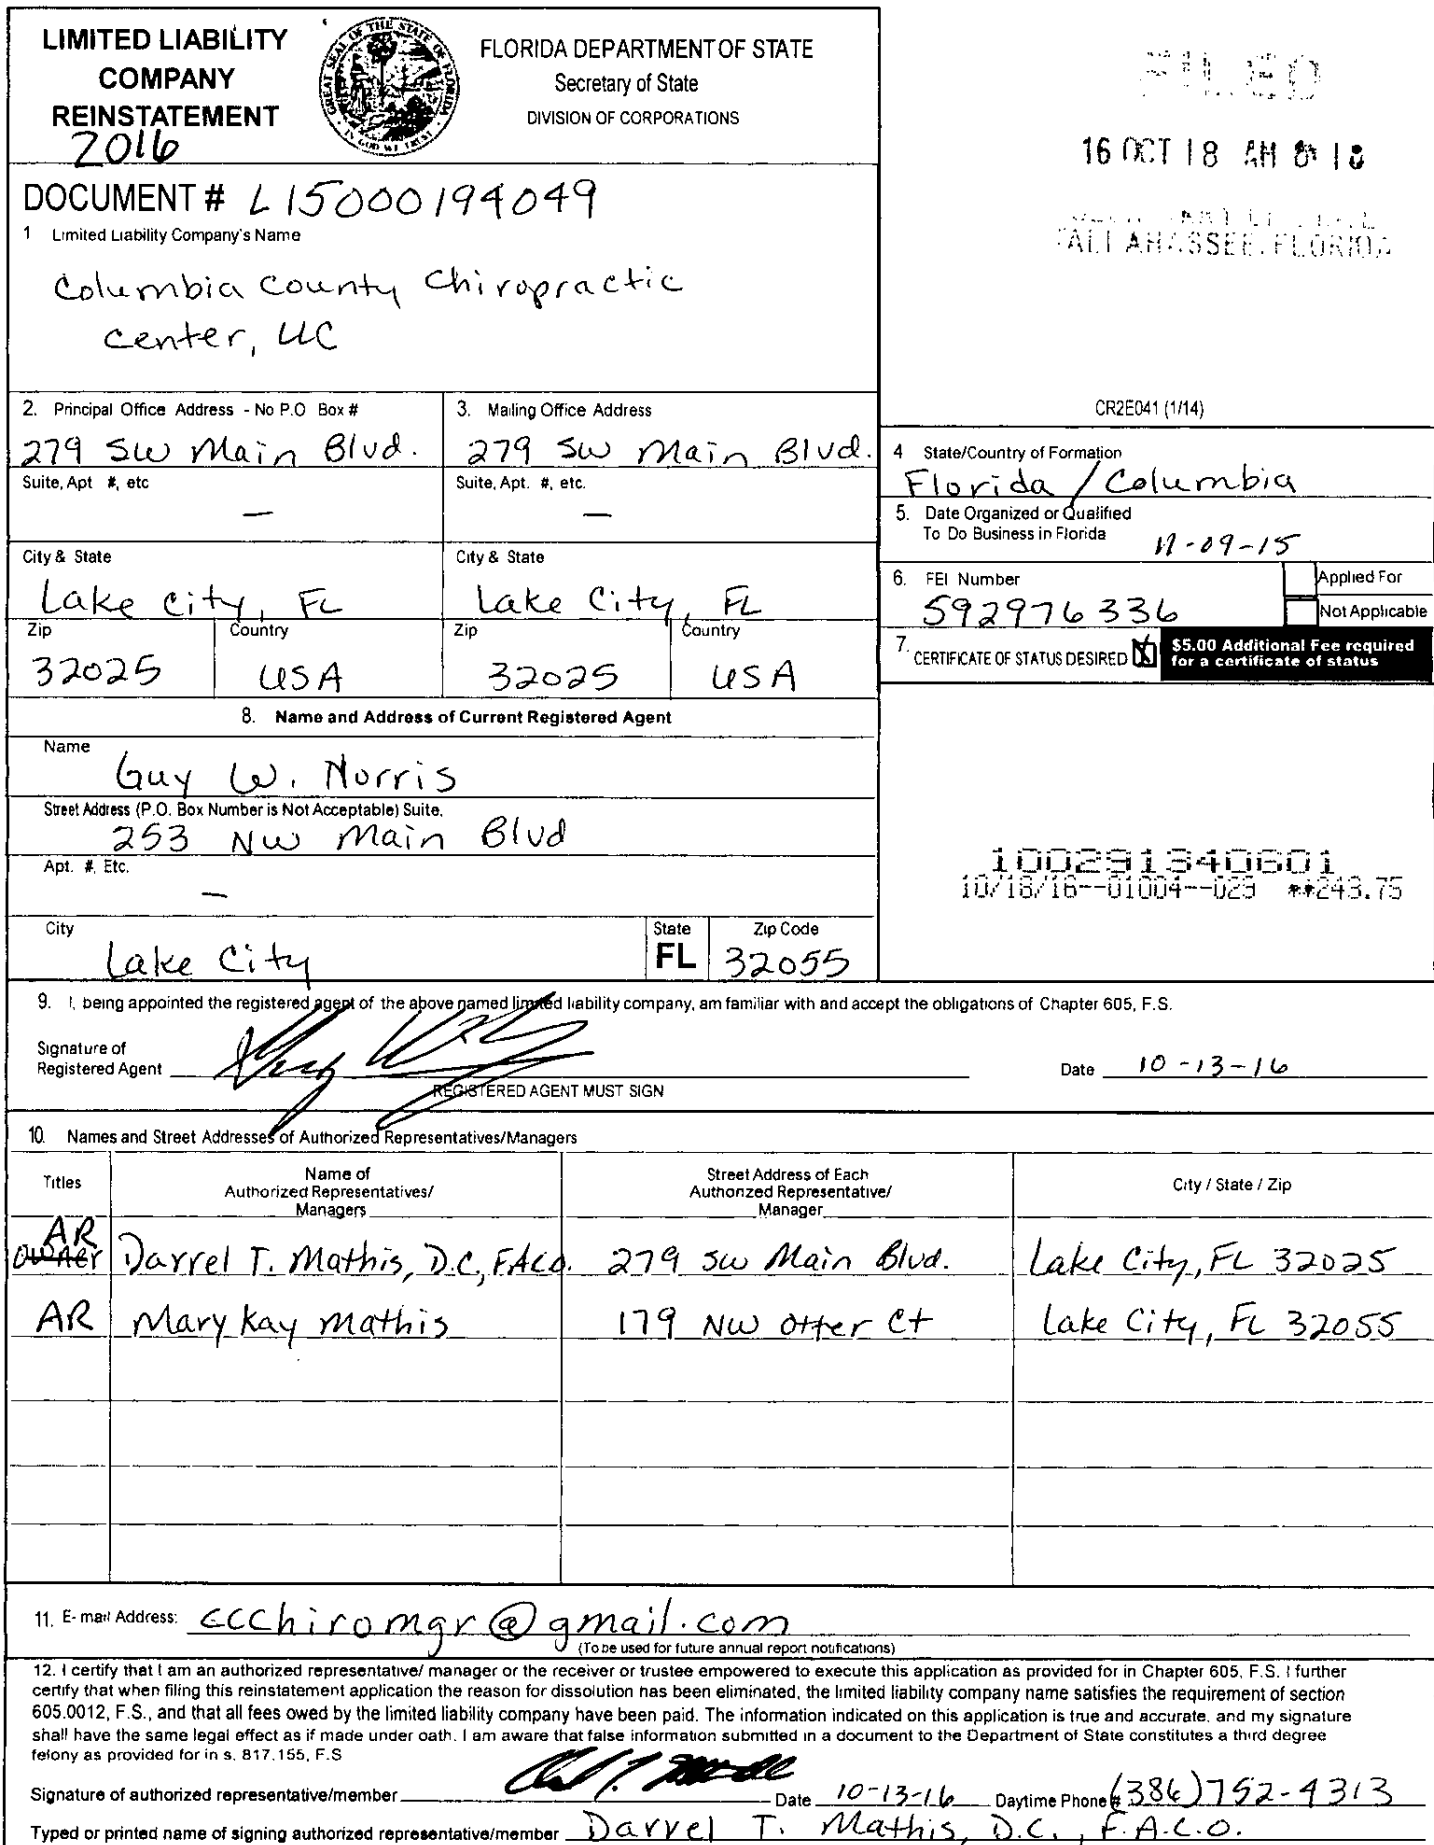 LIMITED LIABILITY
COMPANY
REINSTATEMENT
2016
GREAT SEAL OF THE STATE OF FLORIDA
IN GOD WE TRUST
FLORIDA DEPARTMENT OF STATE
Secretary of State
DIVISION OF CORPORATIONS
FILED
16 OCT 18 AM
TALLAHASSEE, FLORIDA
DOCUMENT # L15000194049
1 Limited Liability Company's Name
Columbia County Chiropractic
Center, LLC
CR2E041 (1/14)
2. Principal Office Address - No P.O Box #
279 SW Main Blvd.
Suite, Apt #, etc
—
City & State
Lake City, FL
Zip Country
32025 USA
3. Mailing Office Address
279 SW Main Blvd.
Suite, Apt. #, etc.
—
City & State
Lake City, FL
Zip Country
32025 USA
4 State/Country of Formation
Florida / Columbia
5. Date Organized or Qualified
To Do Business in Florida
-09-15
6. FEI Number
592976336
Applied For
Not Applicable
7. CERTIFICATE OF STATUS DESIRED X
$5.00 Additional Fee required
for a certificate of status
8. Name and Address of Current Registered Agent
Name
Guy W. Norris
Street Address (P.O. Box Number is Not Acceptable) Suite,
253 NW Main Blvd
Apt. #, Etc.
—
City
Lake City
State
FL
Zip Code
32055
100291340601
10/18/16--01004--023 **243.75
9. I, being appointed the registered agent of the above named limited liability company, am familiar with and accept the obligations of Chapter 605, F.S.
Signature of
Registered Agent
REGISTERED AGENT MUST SIGN
Date 10-13-16
10. Names and Street Addresses of Authorized Representatives/Managers
Titles
Name of
Authorized Representatives/
Managers
Street Address of Each
Authorized Representative/
Manager
City / State / Zip
AR
Owner Darrel T. Mathis, D.C., F.A.C.O. 279 SW Main Blvd. Lake City, FL 32025
AR Mary Kay Mathis 179 NW Otter Ct Lake City, FL 32055
11. E-mail Address: ccchiromgr@gmail.com
(To be used for future annual report notifications)
12. I certify that I am an authorized representative/ manager or the receiver or trustee empowered to execute this application as provided for in Chapter 605, F.S. I further
certify that when filing this reinstatement application the reason for dissolution has been eliminated, the limited liability company name satisfies the requirement of section
605.0012, F.S., and that all fees owed by the limited liability company have been paid. The information indicated on this application is true and accurate, and my signature
shall have the same legal effect as if made under oath. I am aware that false information submitted in a document to the Department of State constitutes a third degree
felony as provided for in s. 817.155, F.S
Signature of authorized representative/member Date 10-13-16 Daytime Phone # (386)752-4313
Typed or printed name of signing authorized representative/member Darrel T. Mathis, D.C., F.A.C.O.